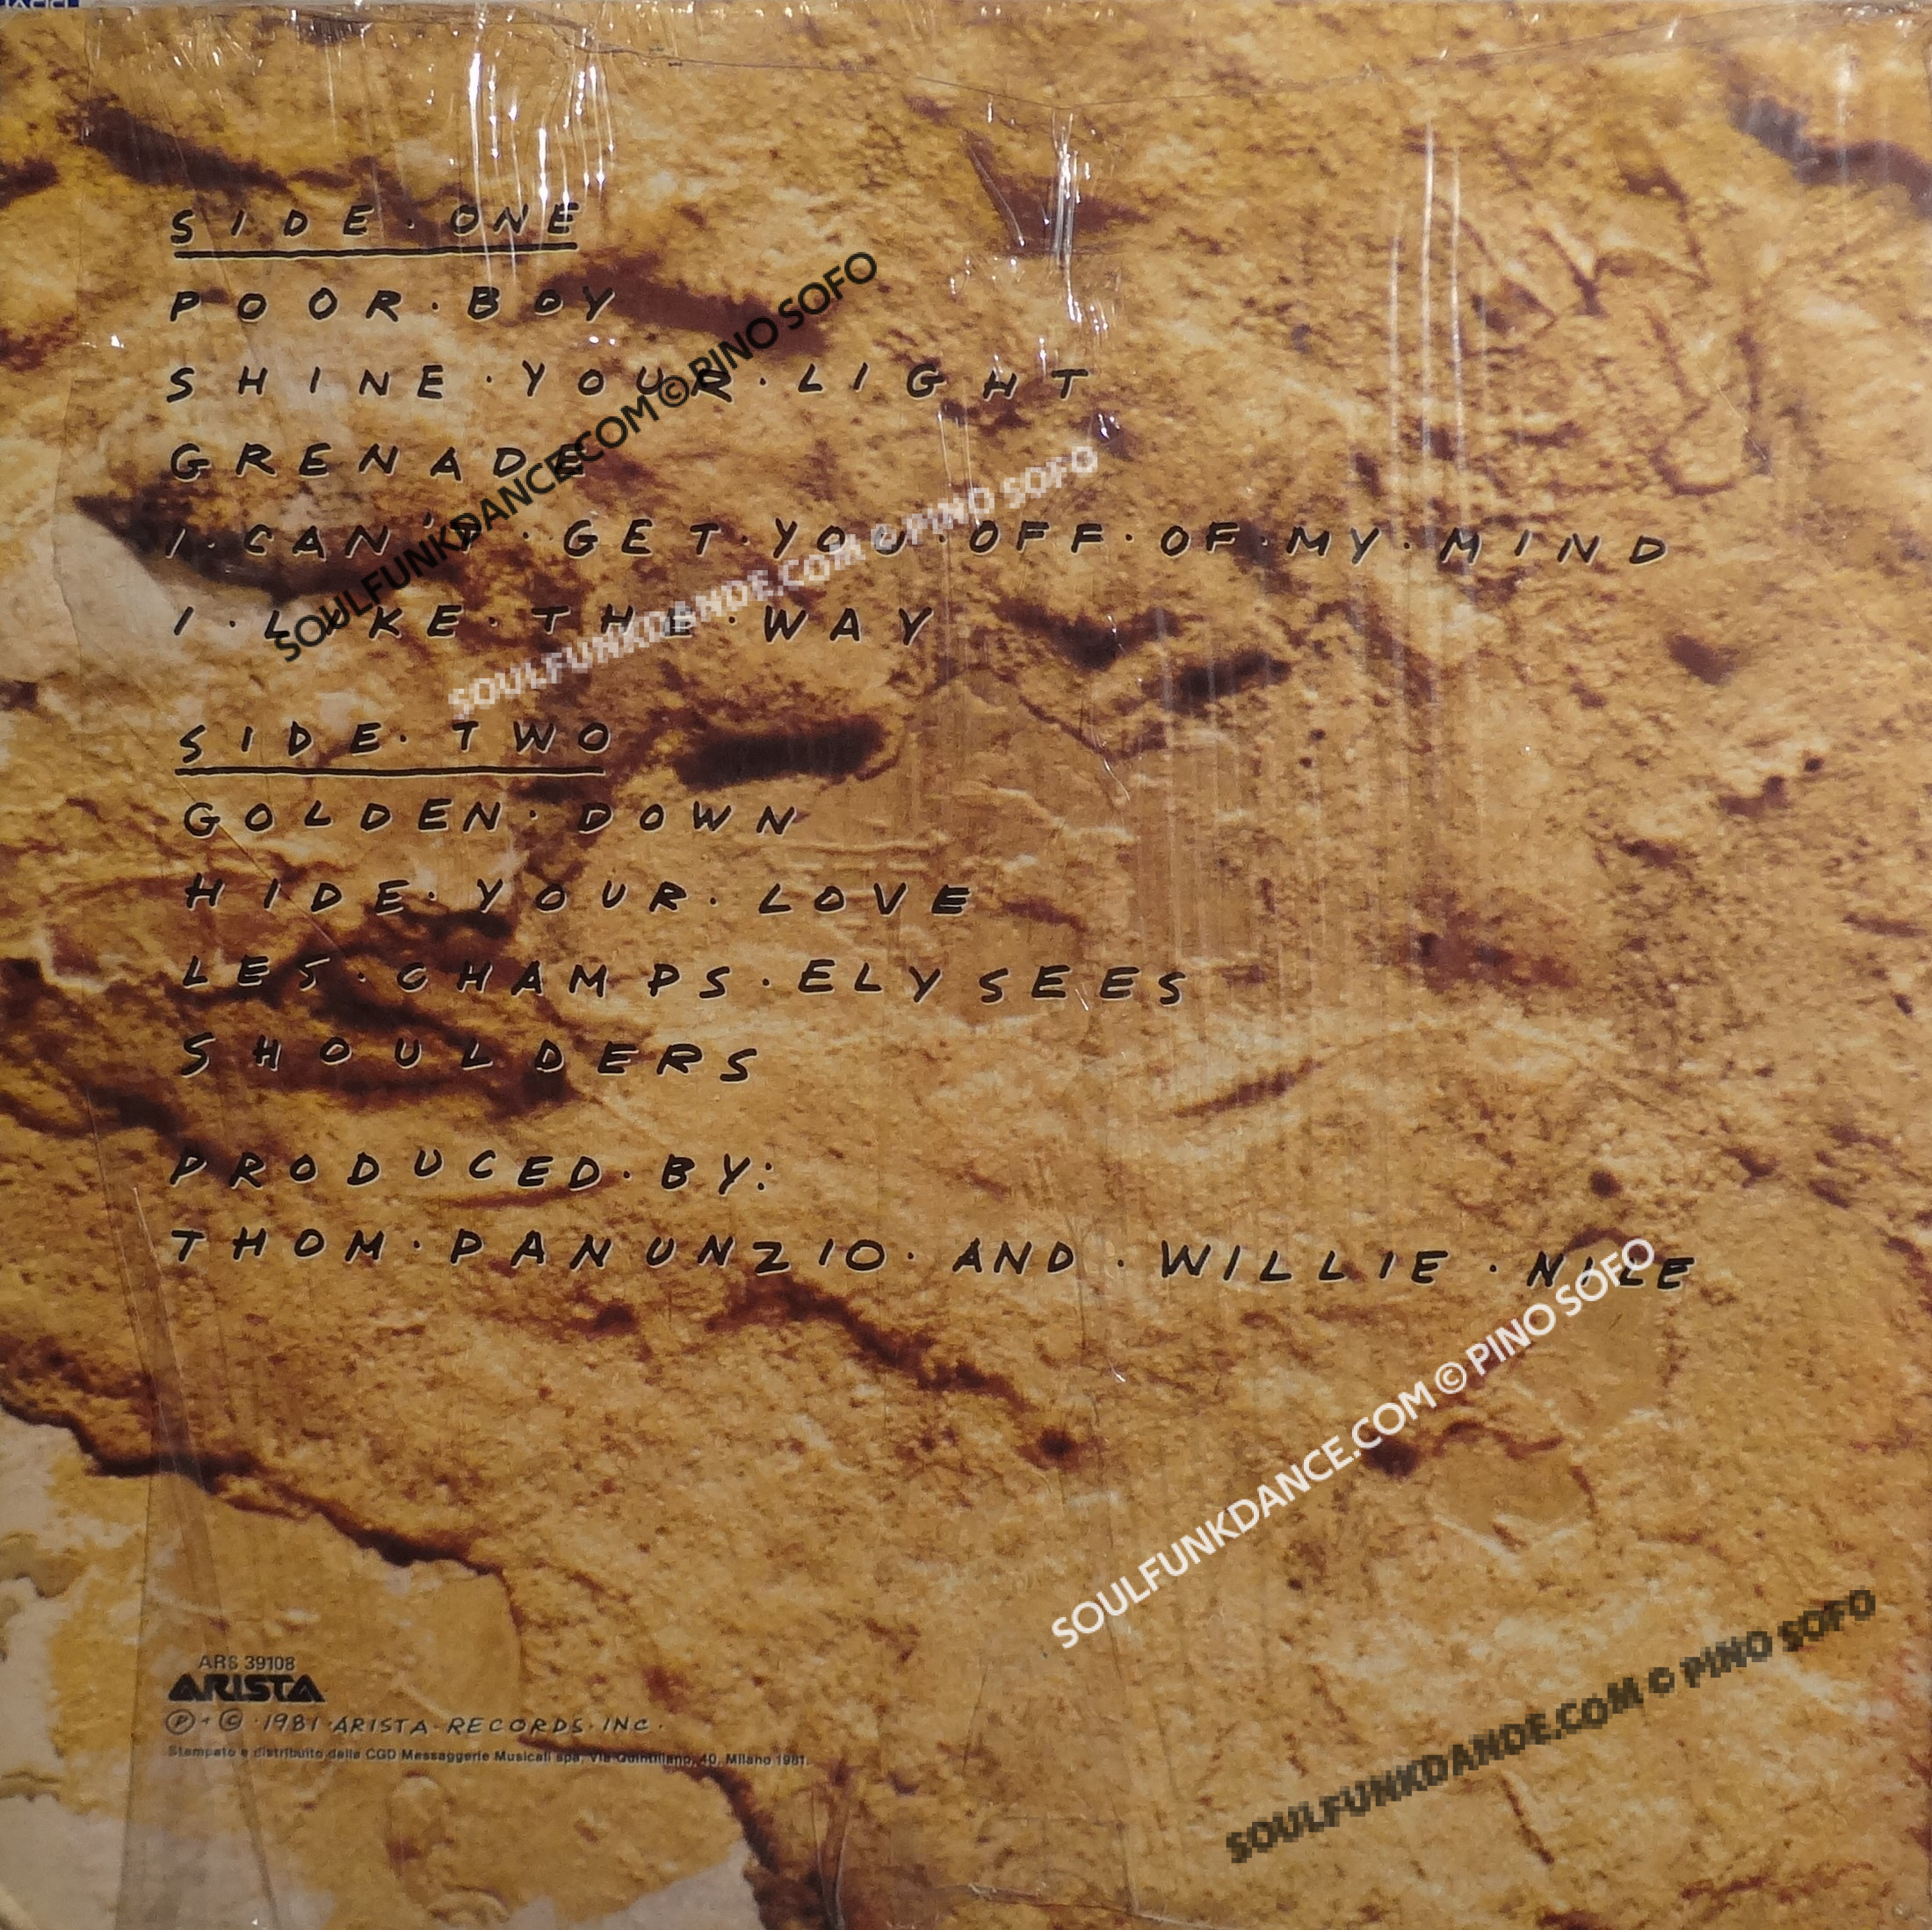 SIDE·ONE
POOR·BOY
SHINE·YOUR·LIGHT
GRENADE
I·CAN'T·GET·YOU·OFF·OF·MY·MIND
I·LIKE·THE·WAY
SIDE·TWO
GOLDEN·DOWN
HIDE·YOUR·LOVE
LES·CHAMPS·ELYSEES
SHOULDERS
PRODUCED·BY:
THOM·PANUNZIO·AND·WILLIE·NILE
SOULFUNKDANCE.COM © PINO SOFO
SOULFUNKDANDE.COM © PINO SOFO
SOULFUNKDANCE.COM © PINO SOFO
SOULFUNKDANDE.COM © PINO SOFO
ARS 39108
ARISTA
℗+©·1981·ARISTA·RECORDS·INC.
Stampato e distribuito dalla CGD Messaggerie Musicali spa, Via Quintiliano, 40, Milano 1981.